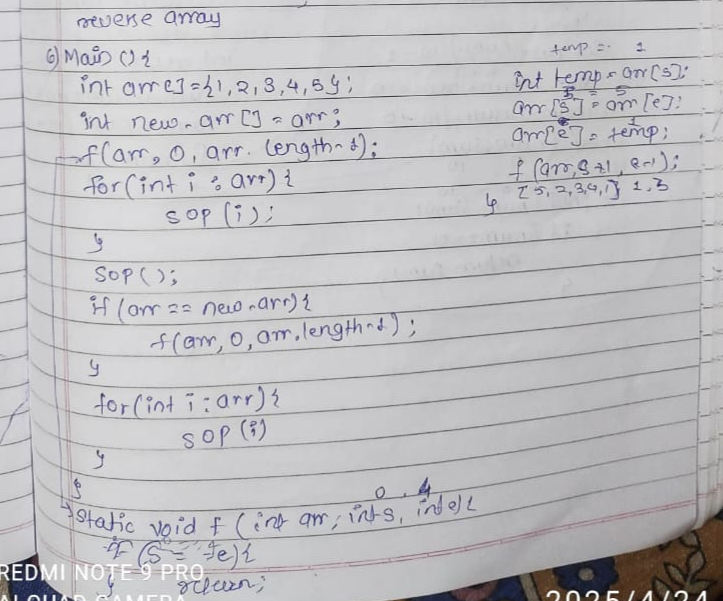 reverse array
6) Main () {
int arr[] = {1, 2, 3, 4, 5};
int new-arr [] = arr;
f(arr, 0, arr. length-1);
for(int i : arr) {
sop (i);
}
SOP ();
if (arr == new-arr) {
f(arr, 0, arr.length-1);
}
for(int i : arr) {
SOP (i)
}
}
0, 4
→ static void f (int arr, int s, int e) {
if (s = e) {
return;
}
temp = 1
int temp = arr[s];
5 = 5
arr[s] = arr[e];
1
arr[e] = temp;
f (arr, s+1, e-1);
} [5, 2, 3, 4, 1] 1, 3
REDMI NOTE 9 PRO
AI QUAD CAMERA
2025/4/24